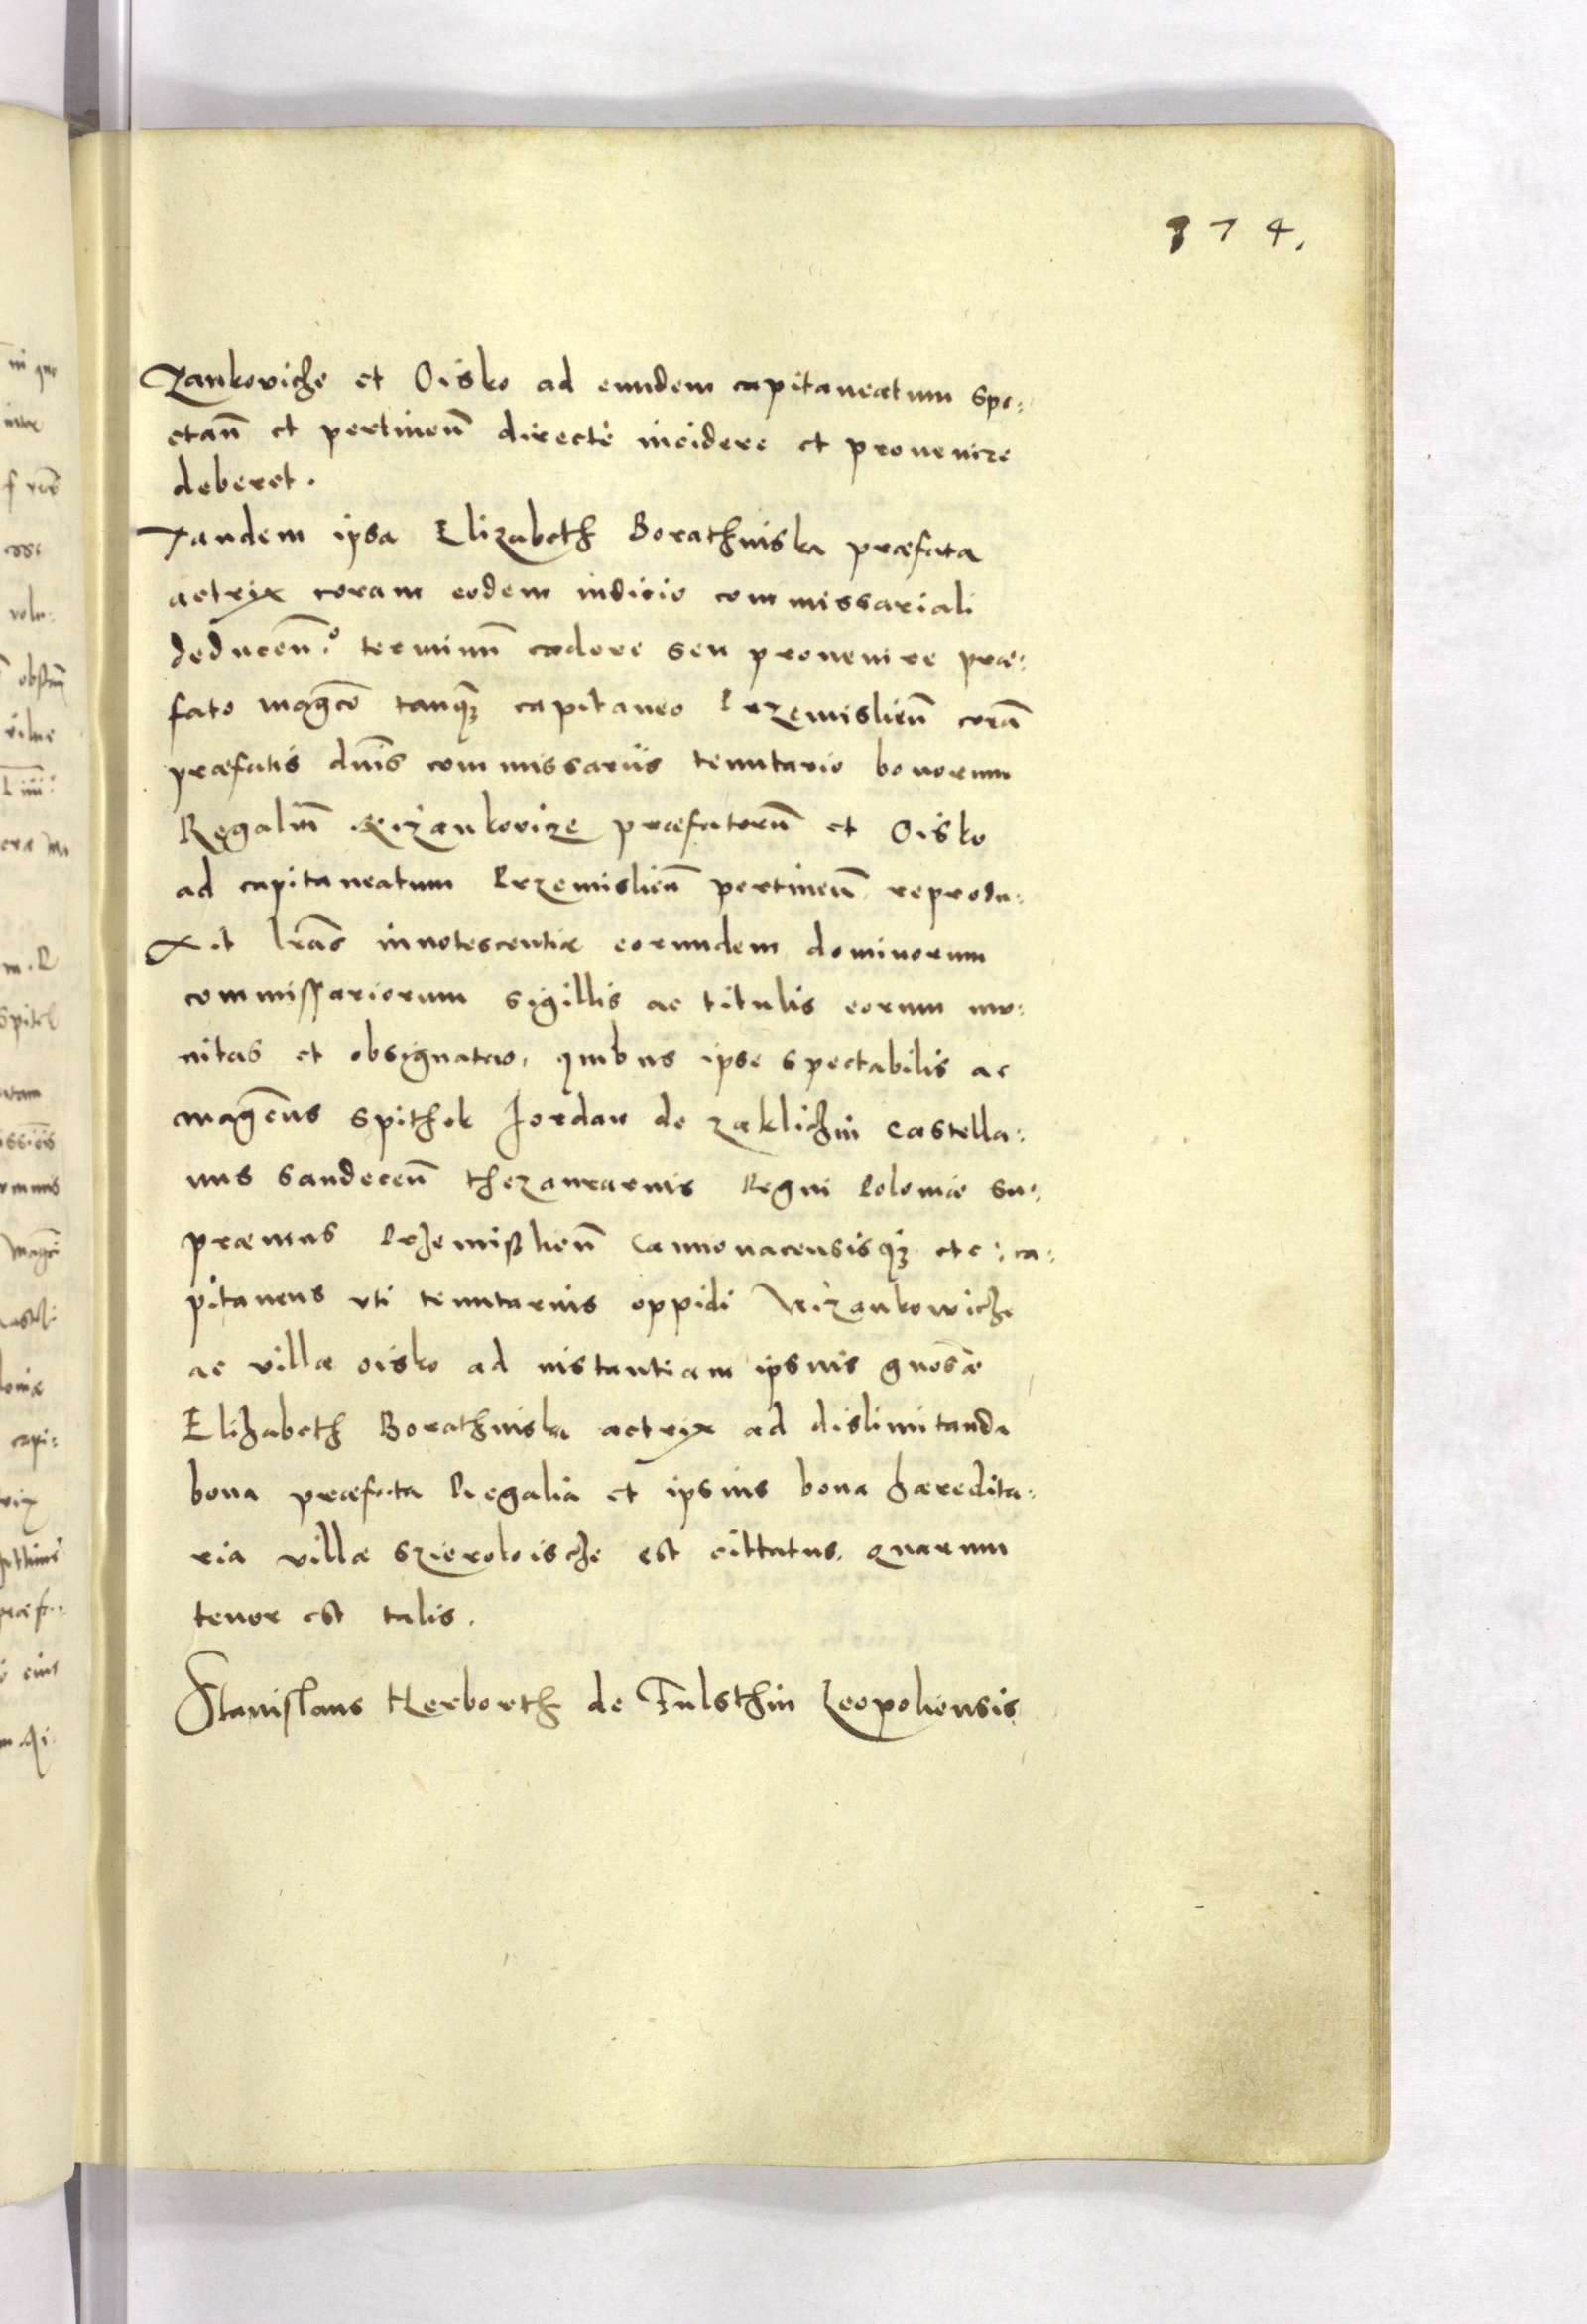 374.
Zankoviche et Oisko ad eundem capitaneatum spe:
ctan̄ et pertinen̄ directè incidere et prouenire
deberet.
Tandem ipsa Elizabeth Borathniska præfata
actrix coram eodem iudicio commissariali
deducen: terminū cedere seu prouenire præ:
fato mag̃co tanq̃ꝫ capitaneo Przemislien̄ corā
præfatis dn̄is commissariis tenutario bonorum
Regaliū Nizankovicze præfatorū et Oisko
ad capitaneatum Przemislien̄ pertinen̄ reprodu:
xit lr̄as innotescentiæ eorundem dominorum
commissariorum sigillis ac titulis eorum mu:
nitas et obsignatas, quibus ipse spectabilis ac
mag̃cus Spithek Jordan de Zaklichin Castella:
nus Sandecen̄ thezaurarius Regni Poloniæ su:
præmus Przemißlien̄ Camionacensisqꝫ etc: ca:
pitaneus vti tenutarius oppidi Nizankowiche
ac villæ Oisko ad instantiam ipsius gnosæ
Elizabeth Borathniska actrix ad dislimitanda
bona præfata Regalia et ipsius bona hæredita:
ria villæ Szierokoische est cittatus. quarum
tenor est talis.
Stanislaus Herborth de Fulsthin Leopoliensis